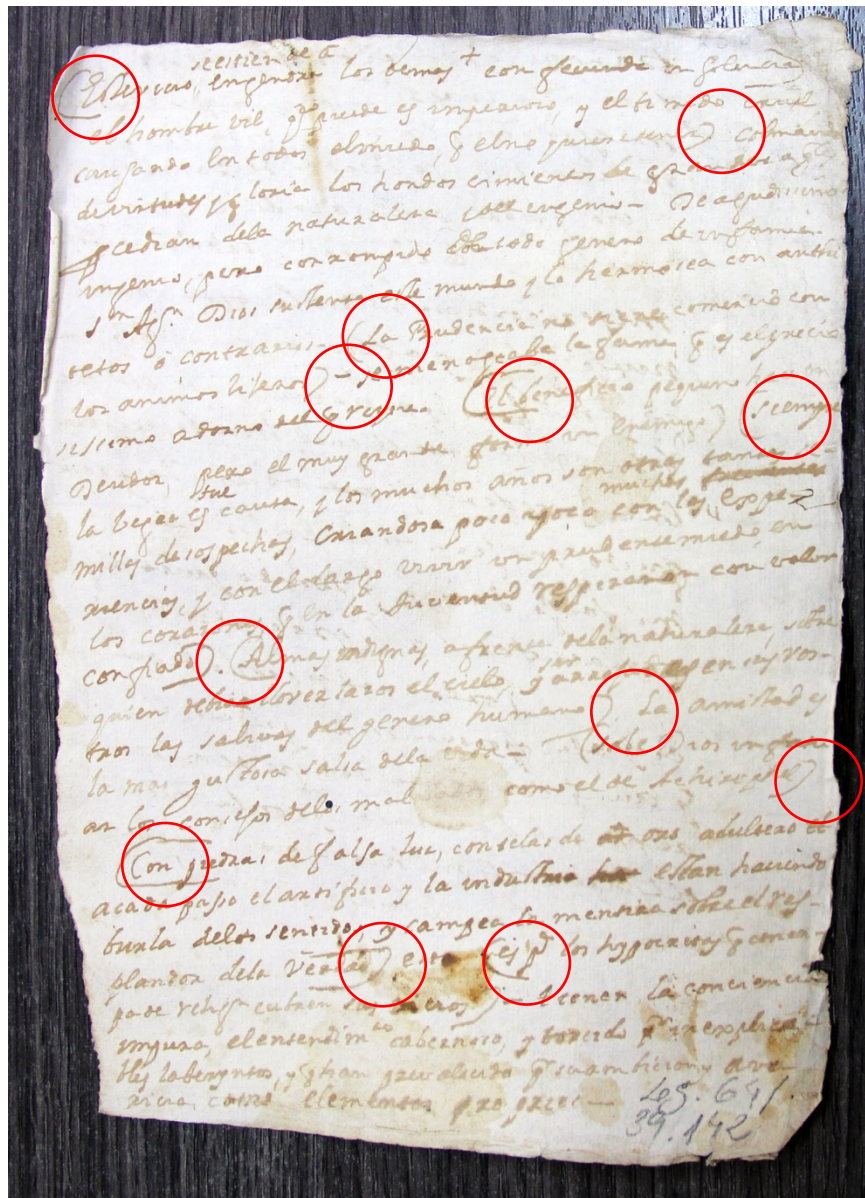 se estiende a
(Este vicio, engendra los demas + con fecunda
el hombre vil, q puede es imperioso, y el timido cruel
causando en todos el miedo, q el no para tener) colmando
de virtudes y gloria los hondos cimientos de grandeza q
procedian dela naturaleza y del engenio – De agudissimo
ingenio, pero corrompido todo genero de infamia
Sn Agn. Dios sustenta este mundo y lo hermosea con anthi
tetos o contrarios – (La Prudencia no tiene comercio con
los animos liberos) – se menoscabe la fama q es el precio
sissimo adorno del
(El beneficio pequeño haze
deudor, pero el muy grande forma un enemigo) (Siempre
la vejez fue causa, y los muchos años son otras tantas
muchas
millas de sospechas, Criandose poco a poco con las expe
riencias, y con el largo vivir un prudente miedo en
los corazones, q en la Juventud respiraron con valor
confiado). (Almas indignas, afrenta dela naturaleza, sobre
quien debia llover rayos el cielo, y en sus ros-
tros las salivas del genero humano) La amistad es
la mas gustosa salsa dela vida – (sabe Dios
ar los consejos delos malvados como el de Achitophel)
(Con piedras de falsa luz, con telas de oro adultero el
acada passo el artificio y la industria estan haciendo
burla delos sentidos, y campea la mentira sobre el res-
plandor dela verdad) esto (es pa los hypocritas q con ca-
pa de religion cubren sus vicios) – tener la conciencia
impura, el entendimto cabernoso, y torcido pr inexplica-
bles laberyntos, y q han prevalecido q su ambicion y ava-
ricia, como elementos proprios –
Leg. 641.
39.142